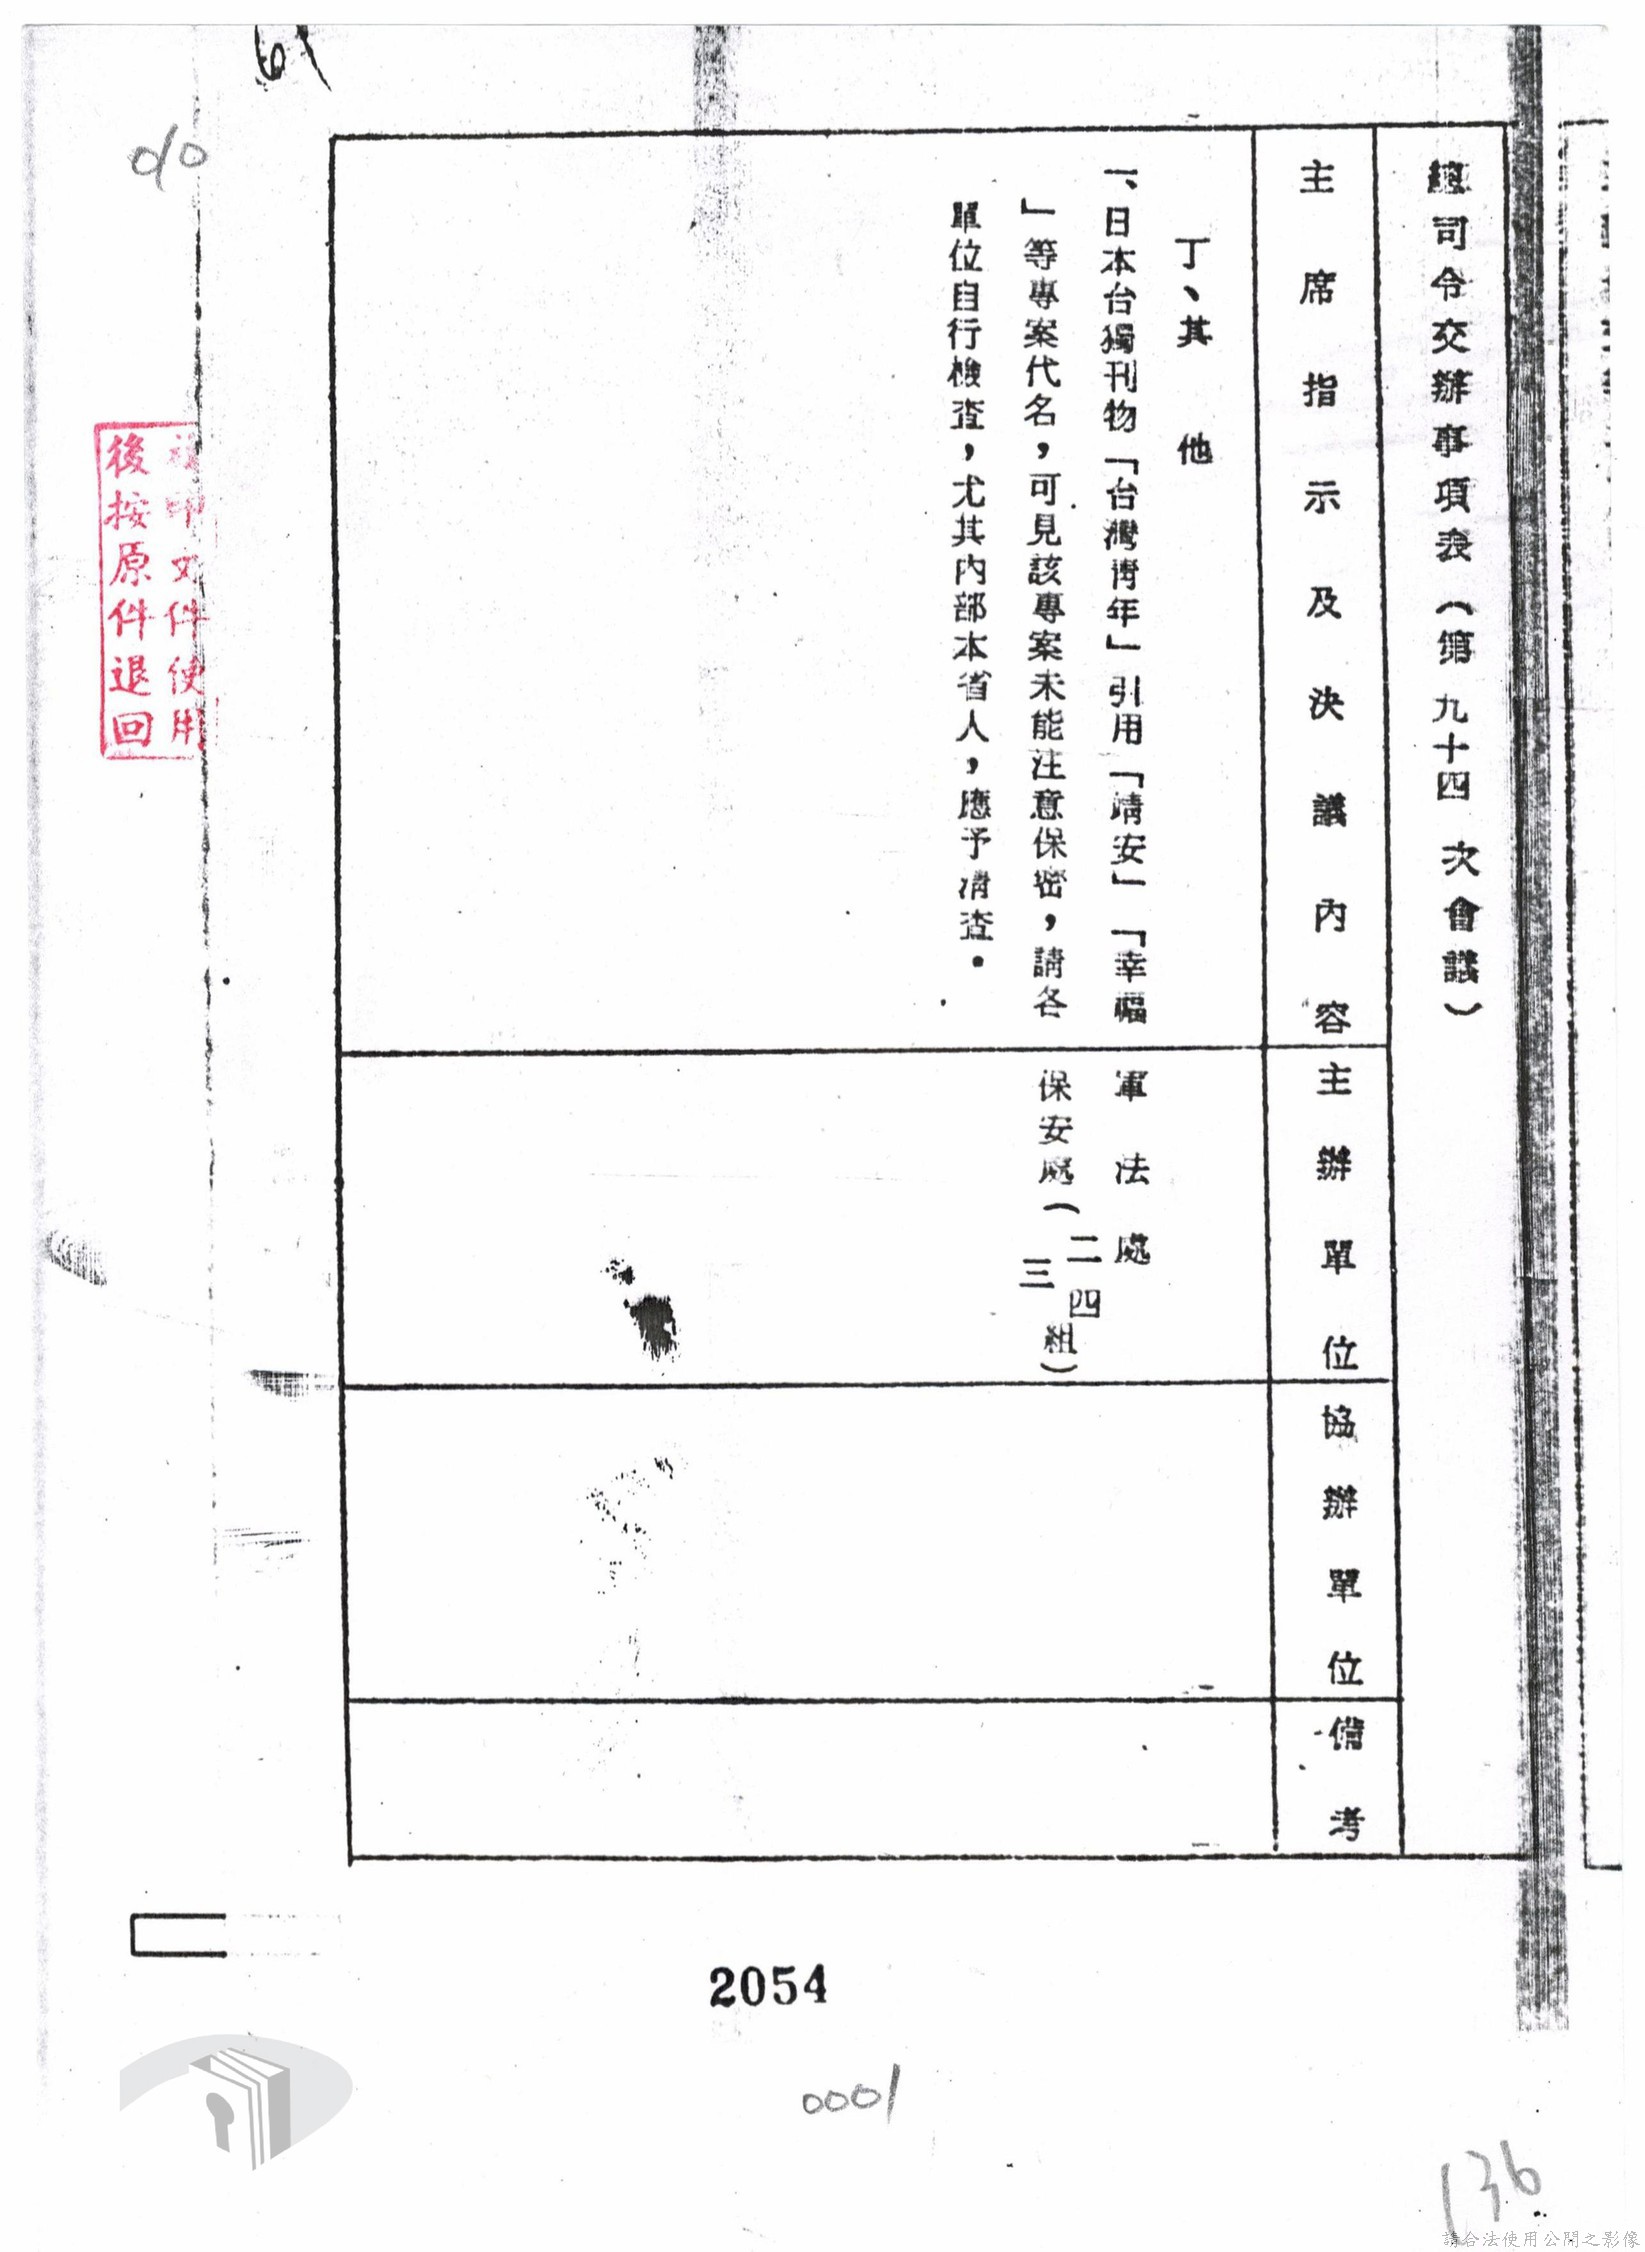 總司令交辦事項表（第九十四次會議）
主席指示及決議內容
主辦單位
協辦單位
備考
丁、其他
一、日本台獨刊物「台灣青年」引用「靖安」「幸福
」等專案代名，可見該專案未能注意保密，請各
單位自行檢查，尤其內部本省人，應予清查。
軍法處
保安處（二三四組）
文件使用
後按原件退回
2054
0001
136
請合法使用公開之影像